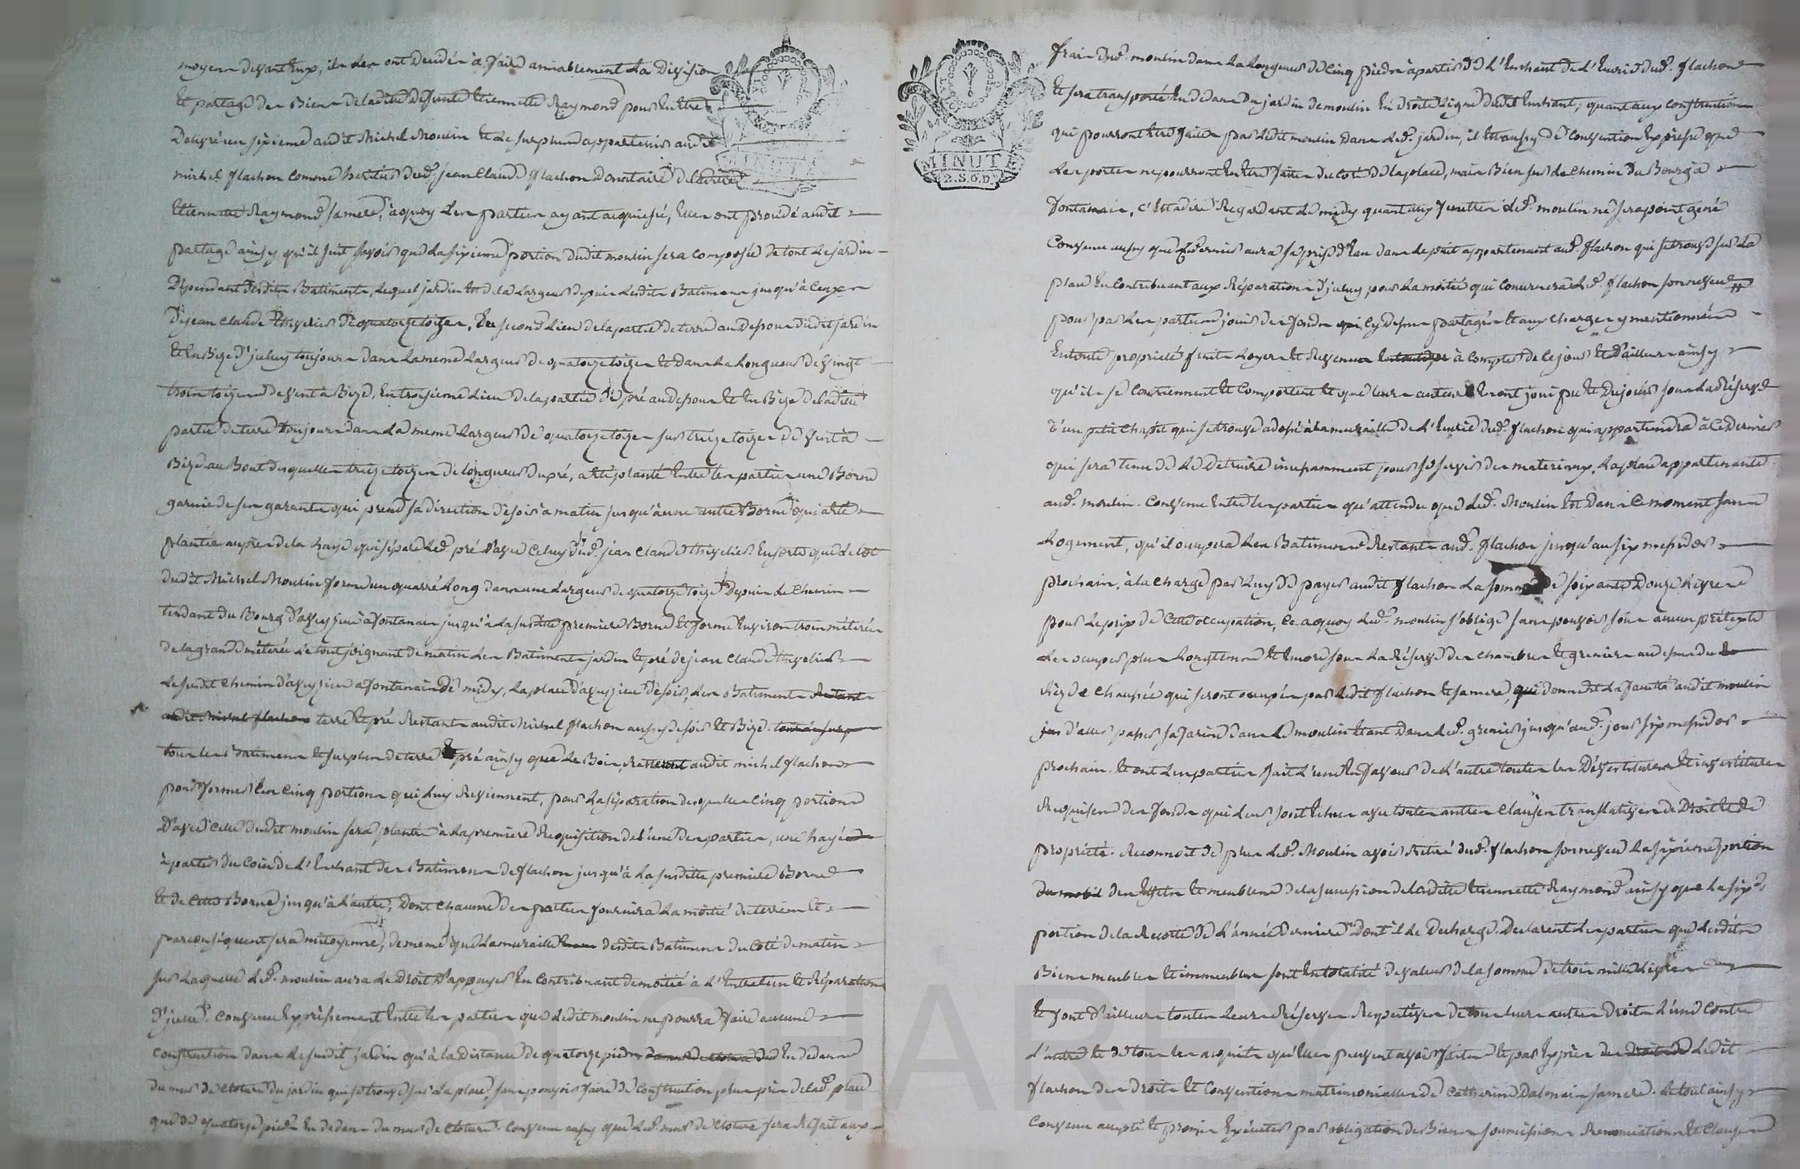 moyens devant Eux, ils les ont decidée à faire amiablement La Division
Et partage des Biens deladite defunte Etiennette Raymond pour En Etre
Delivré un sixieme audit Michel Moulin Et le surplus appartenir audit
michel flachon comme heritier dud. jean Claude flachon donataire deladite
Etiennette Raymond samere, aquoy Les parties ayant acquiesé, Elles ont procedé audit
partage ainsy qu'il suit savoir que La sixieme portion dudit moulin sera composée de tout Le jardin
Dependant desdits Batiments, Lequel jardin Est de la Largeur depuis Lesdits Batiments jusqu'à Ceux
De jean Claude de quatorze toizes, En second Lieu de la partie de terre audessous dudit jardin
Et En Bize d'jceluy toujours dans La meme Largeur de quatorze toizes Et dans La Longueur de Vingt
trois toizes de Vent à Bize, En troisieme Lieu de la partie de pré audessous Et En Bize de ladite
partie de terre toujours dans La meme Largeur de quatorze toizes sur treize toizes de Vent à
Bize au Bout desquelles treize toizes de Longueur du pré, a été planté Entre Les parties une Borne
garnie de ses garants qui prend sa direction de soir à matin jusqu'à une autre Borne qui a été
plantée auprès de la haye qui sépare Led. pré d'avec Celuy dud. jean Claude En sorte que Le lot
dudit Michel Moulin forme un quarré Long dans une Largeur de quatorze toize Depuis Le Chemin
tendant du Bourg à fontanes jusqu'à La susdite premiere Borne Et forme Environ trois meterées
de la grande meterée Le tout joignant de matin Les Batiments jardin Et pré de jean Claude
Le susdit Chemin à fontanes de midy, La place de soir, Les Batiments restants
audit Michel flachon terre Et pré Restants audit Michel flachon aussy de soir Et Bize
tous les Batiments Et surplus de terre Et pré ainsy que Le Bois, audit michel flachon
pour former Les Cinq portions qui Luy Reviennent, pour La séparation desquelles Cinq portions
D'avec Celle dudit moulin sera plantée à La premiere Requisition de L'une des parties, une haye
à partir du Coin de L' des Batiments de flachon jusqu'à La susdite premiere Borne
Et de Cette Borne jusqu'à L'autre, Dont chacune des parties fournira La moitié du terrein Et
par consequent sera mitoyenne, de meme que La muraille desdits Batiments du Coté de matin
sur Laquelle Led. moulin aura Le Droit D'appuyer En Contribuant de moitié à L'Entretien Et Réparation
D'jcelle. Convenu Expressement Entre Les parties que Ledit moulin ne pourra faire aucune
Construction dans Le susdit jardin qu'à La distance de quatorze pieds En dedans
du mur de Cloture du jardin qui se trouve sur La place, sans pouvoir faire de Construction plus près de lad. place
que de quatorze pieds En dedans du mur de Cloture. Convenu aussy que Led. mur de Cloture sera Refait aux
MINUTE
2. S. 6. D.
frais dud. moulin dans La Longueur de Cinq pieds à partir de L' de L'Ecurie dud. flachon
Et sera transporté En dedans du jardin de moulin En droite Ligne dudit quant aux Constructions
qui pourront Etre faites par Ledit moulin dans Led. jardin, il Est aussy de Convention Expresse que
Les portes ne pourront Etre faites du Coté de La place, mais Bien sur Le Chemin du Bourg à
fontanais, c'Est à dire Regardant Le midy quant aux fenetres Led. moulin ne sera point gené
Convenu aussy que Ce dernier aura sa prise d'Eau dans Le puit appartenant aud. flachon qui se trouve sur La
place En Contribuant aux Réparations d'jceluy pour La moitié qui Concernera Led. flachon son neveu
pour par Les parties jouir des fonds Cy dessus partagés Et aux Charges y mentionnées
En toute propriété fruits Loyers Et Revenus à Compter de Ce jour Et D'ailleurs ainsy
qu'ils se Contiennent Et Comportent Et que Leurs auteurs En ont joui pu Et Du jouir sous La Réserve
d'un petit Chapit qui se trouve adossé à La muraille de L'Ecurie dud. flachon qui appartiendra à Ce dernier
qui sera tenu de Le detruire incessamment pour se servir des materiaux, La place appartenante
aud. moulin. Convenu Entre Les parties qu'attendu que Led. Moulin Est dans Ce moment sans
Logement, qu'il occupera Les Batiments Restants aud. flachon jusqu'au six messidor
prochain, à La charge par Luy de payer audit flachon La somme de soixante Douze Livres
pour Le prix de Cette occupation, Ce aquoy Led. moulin s'oblige sans pouvoir sous aucun prétexte
Les occuper plus Longtems Et Encore sous La Réserve des chambres Et grenier audessus du
Réz de Chaussée qui seront occupées par Ledit flachon Et sa mere, qui donne dit La faculté audit moulin
d'aller passer sa farine dans Le moulin Etant dans Led. grenier jusqu'aud. jour six messidor
prochain. Et ont Les parties fait L'une En faveur de L'autre toutes Les Dévestitures Et investitures
Requises des fonds qui Leur sont Echus avec toutes autres Clauses translatives de Droit Et de
propriété. Reconnoit de plus Led. Moulin avoir Retiré dud. flachon son neveu La sixieme portion
des Effets Et meubles de la succession de ladite Etiennette Raymond ainsy que La six.e
portion de la Recolte de L'année Derniere Dont il Le Decharge. Declarent Les parties que Lesdits
Biens meubles Et immeubles sont En totalité de valeur de la somme de trois mille Livres
Et sont D'ailleurs toutes Leurs Réserves Respectives de tous Leurs autres Droits L'une Contre
L'autre Et de tous Les acquits qu'Elles peuvent avoir faites Et par Exprès Ledit
flachon des Droits Et Conventions matrimonialles de Catherine Dalmais sa mere. Le tout ainsy
Convenu accepté Et promis Exécuter par obligation de Biens soumissions Renonciations Et Clauses